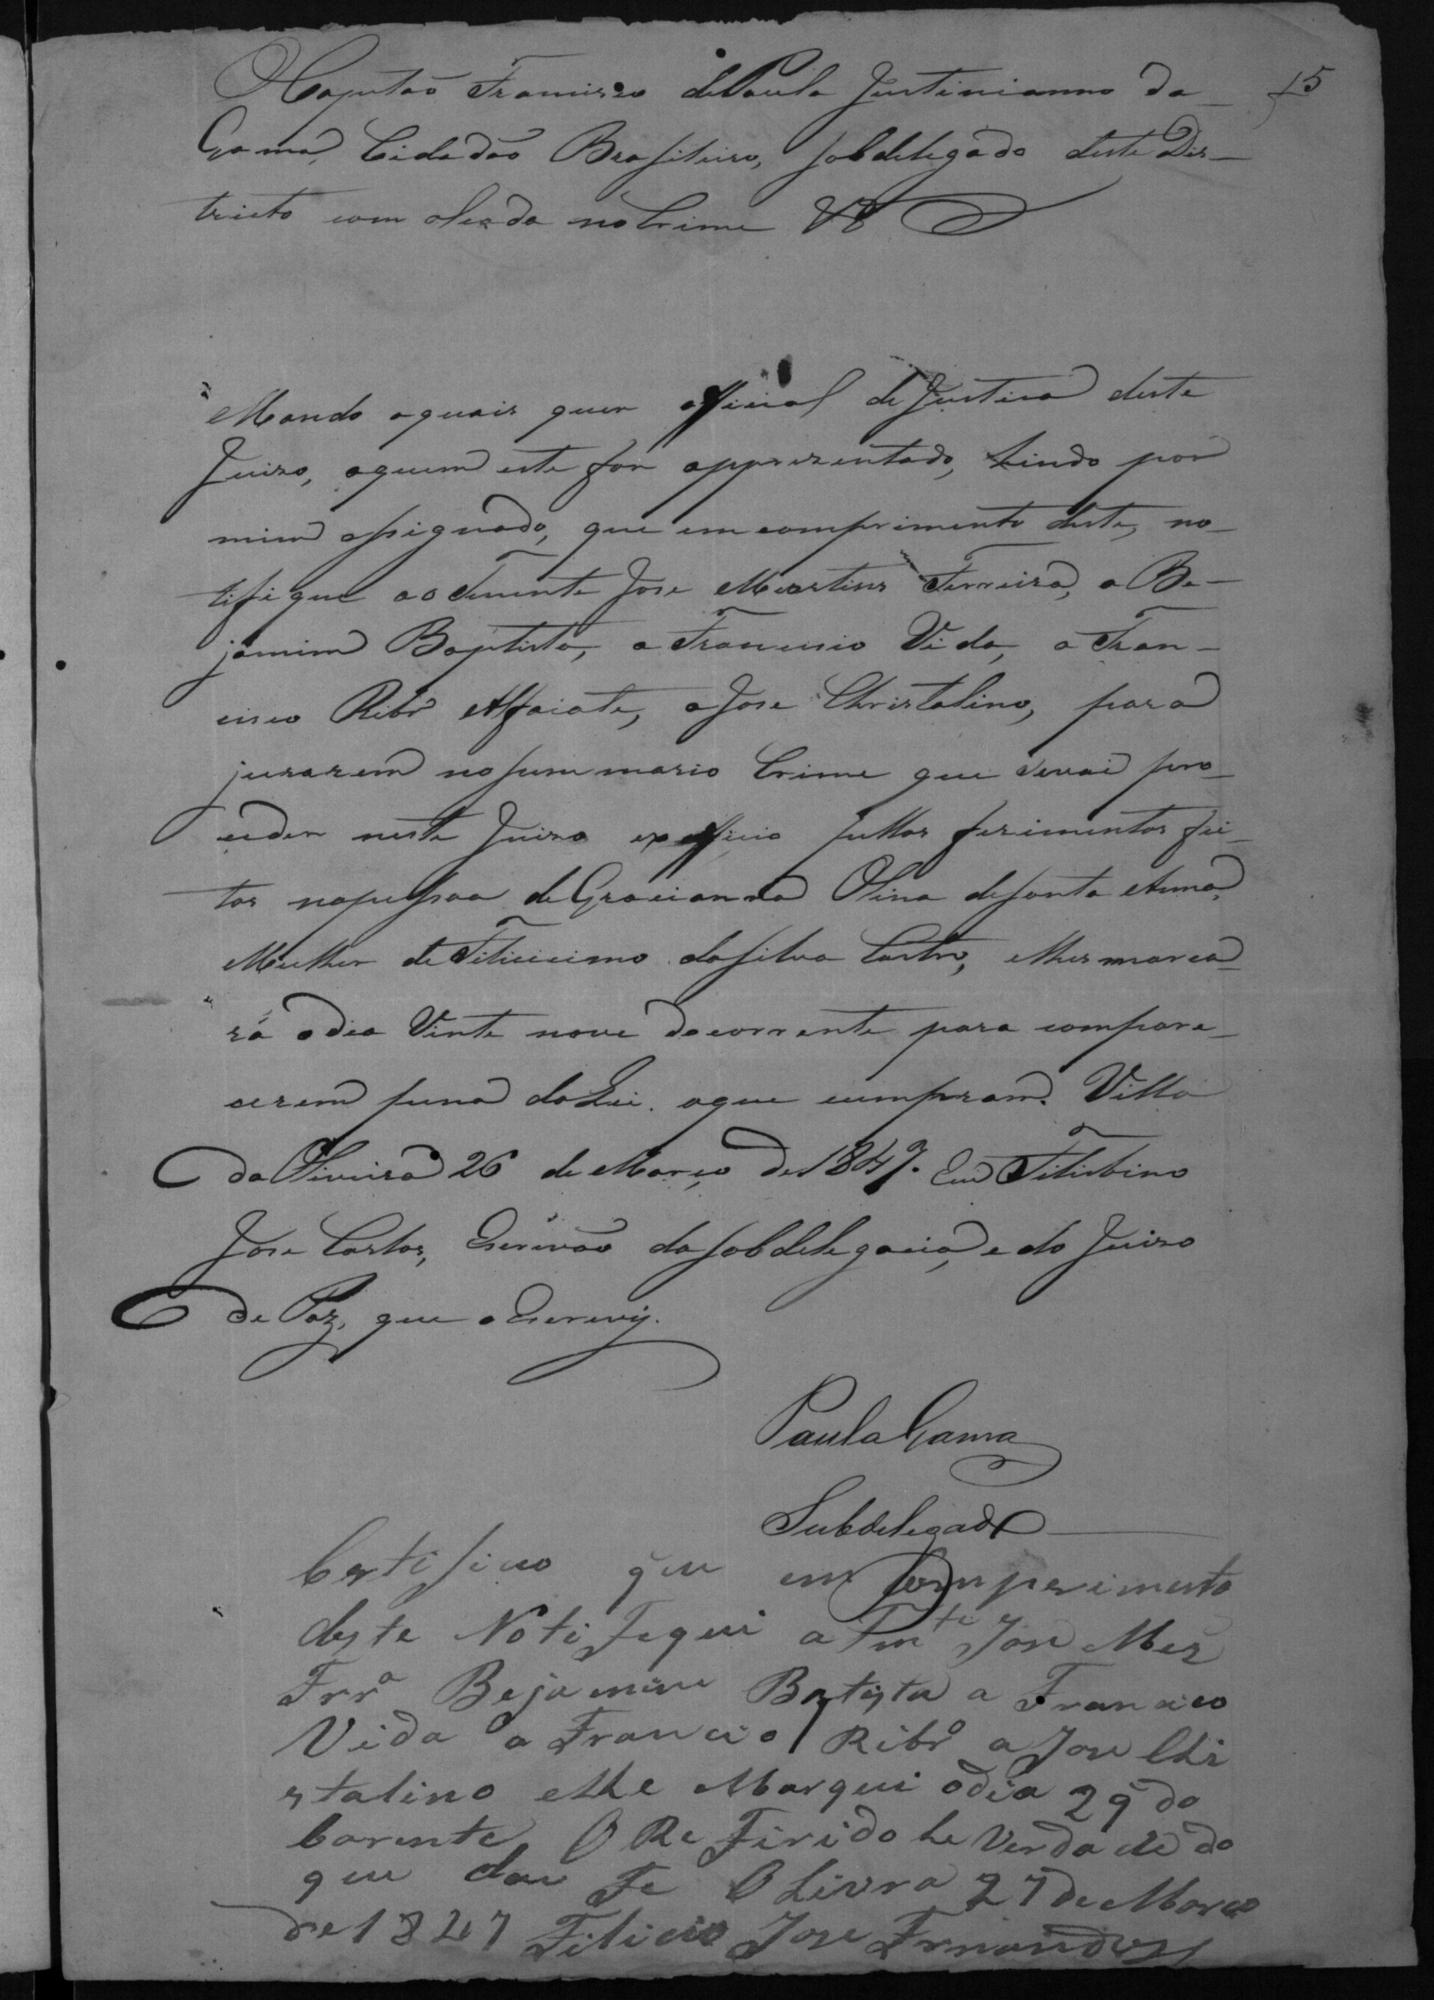 O Capitão Francisco de Paula Justinianno da 15
Gama, Cidadão Brasileiro, Sobdelegado deste Dis-
tricto com alçada no Crime &
Mando aquais quer official de Justica deste
Juizo, aquem este for apprezentado, hindo por
mim assignado, que em comprimento deste, no-
tifique ao Tenente Jose Martins Ferreira, a Be-
jamim Baptista, a Francisco Vida, a Fran-
cisco Ribrº Alfaiate, a Jose Christalino, para
jurarem no summario Crime que sevai pro-
ceder neste Juizo ex officio pellos ferimentos fei-
tos napessoa de Gracianna Olina de Santa Anna,
Mulher de Filicicimo da Silva Castro, elhes marca-
rá odia Vinte nove do corrente para compare-
cerem pena da Lei. oque cumpram. Villa
da Oliveira 26 de Março de 1847. Eu Filisbino
Jose Carlos, Escrivão da Sobdelegacia, e do Juizo
de Paz, que o Escrevy.
Paula Gama
Subdelegado
Certifico que em Comperimento
deste Notifequi a Tente Jose Mez
Frrª Bejamim Batista a Francico
Vida a Francico Ribrº a Jose Chi
stalino elhe Marqui odia 29 do
Corente O Refirido he Verdade do
que dou Fe Olivra 27 de Março
de 1847 Filicio Jose Frnandes